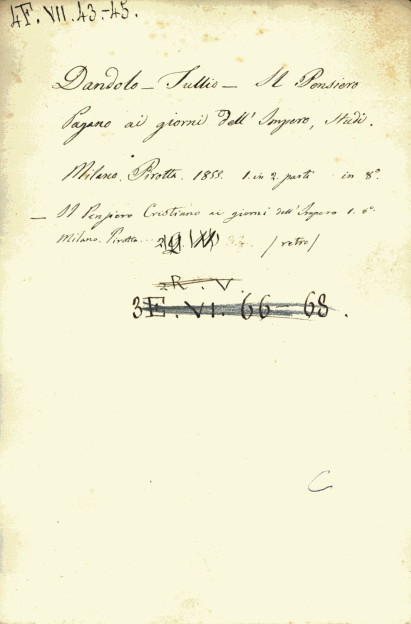 4F. VII. 43.-45.
Dandolo - Tullio - Il Pensiero
Pagano ai giorni dell' Impero, Studi.
Milano. Pirotta. 1855. 1. in 2. parti in 8°
— Il Pensiero Cristiano ai giorni dell' Impero 1. 8°
Milano. Pirotta. /retro/
2R. V.
3E. VI. 66 - 68.
C